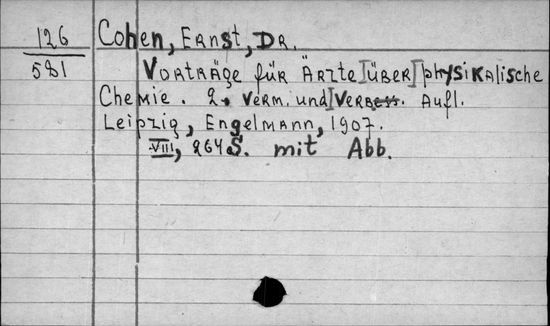 126 Cohen, Ernst, Dr.
581 Vorträge für Ärzte über physikalische
Chemie. 2. verm. und verbess. Aufl.
Leipzig, Engelmann, 1907.
VIII, 264 S. mit Abb.